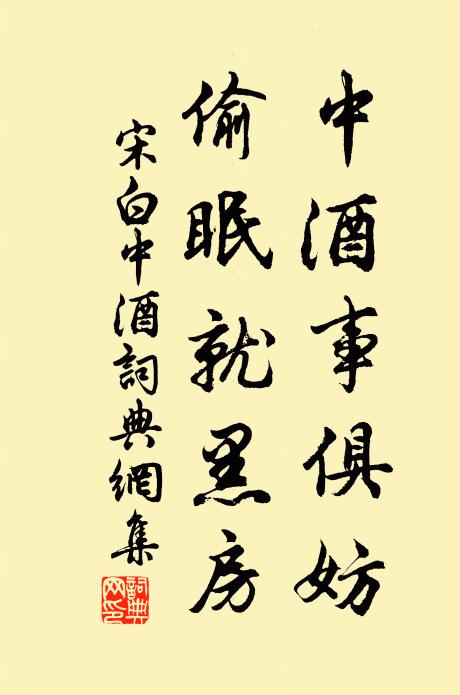 中酒事俱妨
偷眠就黑房
宋白中酒詞典網集
詞典網印